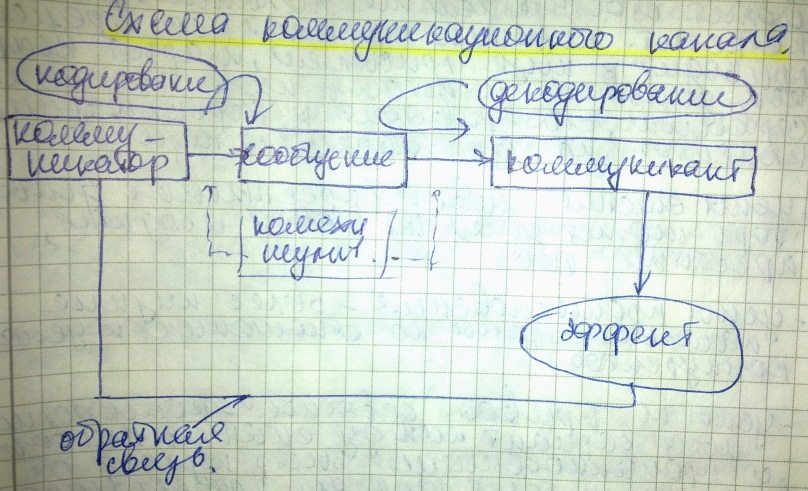 Схема коммуникационного канала.
кодировани
декодировании
комму-
никатор
сообщение
коммуникант
помехи
шумы
эффект
обратная
связь.